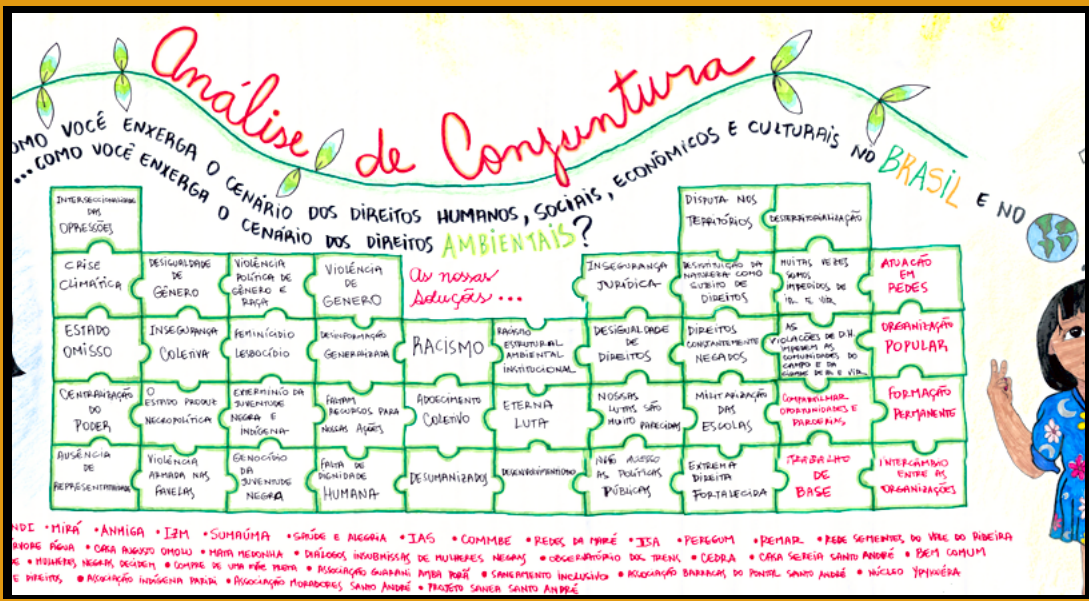 Análise de Conjuntura
OMO VOCÊ ENXERGA O CENÁRIO DOS DIREITOS HUMANOS, SOCIAIS, ECONÔMICOS E CULTURAIS NO BRASIL E NO
...COMO VOCÊ ENXERGA O CENÁRIO DOS DIREITOS AMBIENTAIS?
INTERSECCIONALIDADE
DAS
OPRESSÕES
DISPUTA NOS
TERRITÓRIOS
DESTERRITORIALIZAÇÃO
CRISE
CLIMÁTICA
DESIGUALDADE
DE
GÊNERO
VIOLÊNCIA
POLÍTICA DE
GÊNERO E
RAÇA
VIOLÊNCIA
DE
GENERO
As nossas
Soluções...
INSEGURANÇA
JURÍDICA
DESTITUIÇÃO DA
NATUREZA COMO
SUJEITO DE
DIREITOS
MUITAS VEZES
SOMOS
IMPEDIDOS DE
IR E VIR
ATUAÇÃO
EM
REDES
ESTADO
OMISSO
INSEGURANÇA
COLETIVA
FEMINICÍDIO
LESBOCÍDIO
DESINFORMAÇÃO
GENERALIZADA
RACISMO
RACISMO
ESTRUTURAL
AMBIENTAL
INSTITUCIONAL
DESIGUALDADE
DE
DIREITOS
DIREITOS
CONSTANTEMENTE
NEGADOS
AS
VIOLAÇÕES DE D.H.
IMPEDEM AS
COMUNIDADES DO
CAMPO E DA
CIDADE DE IR E VIR
ORGANIZAÇÃO
POPULAR
CENTRALIZAÇÃO
DO
PODER
O
ESTADO PRODUZ
NECROPOLÍTICA
EXTERMÍNIO DA
JUVENTUDE
NEGRA E
INDÍGENA
FALTAM
RECURSOS PARA
NOSSAS AÇÕES
ADOECIMENTO
COLETIVO
ETERNA
LUTA
NOSSAS
LUTAS SÃO
MUITO PARECIDAS
MILITARIZAÇÃO
DAS
ESCOLAS
COMPARTILHAR
OPORTUNIDADES E
PARCERIAS
FORMAÇÃO
PERMANENTE
AUSÊNCIA
DE
REPRESENTATIVIDADE
VIOLÊNCIA
ARMADA NAS
FAVELAS
GENOCÍDIO
DA
JUVENTUDE
NEGRA
FALTA DE
DIGNIDADE
HUMANA
DESUMANIZADOS
DESENVOLVIMENTISMO
ACESSO
AS POLÍTICAS
PÚBLICAS
EXTREMA
DIREITA
FORTALECIDA
TRABALHO
DE
BASE
INTERCÂMBIO
ENTRE AS
ORGANIZAÇÕES
NDI • MIRÁ • ANMIGA • • SUMAÚMA • SAÚDE E ALEGRIA • IAS • COMMBE • REDES DA MARÉ • ISA • PEREGUM • REMAR • REDE SEMENTES DO VALE DO RIBEIRA
ÁRVORE ÁGUA • CASA AUGUSTO OMOLU • MATA MEDONHA • DIÁLOGOS INSUBMISSAS DE MULHERES NEGRAS • OBSERVATÓRIO DOS TRENS • CEDRA • CASA SEREIA SANTO ANDRÉ • BEM COMUM
E • MULHERES NEGRAS DECIDEM • COMPRE DE UMA MÃE PRETA • ASSOCIAÇÃO GUARANI AMBA PORÃ • SANEAMENTO INCLUSIVO • ASSOCIAÇÃO BARRACAS DO PONTAL SANTO ANDRÉ • NÚCLEO
E DIREITOS • ASSOCIAÇÃO INDÍGENA PARIRI • ASSOCIAÇÃO MORADORES SANTO ANDRÉ • PROJETO SANEA SANTO ANDRÉ